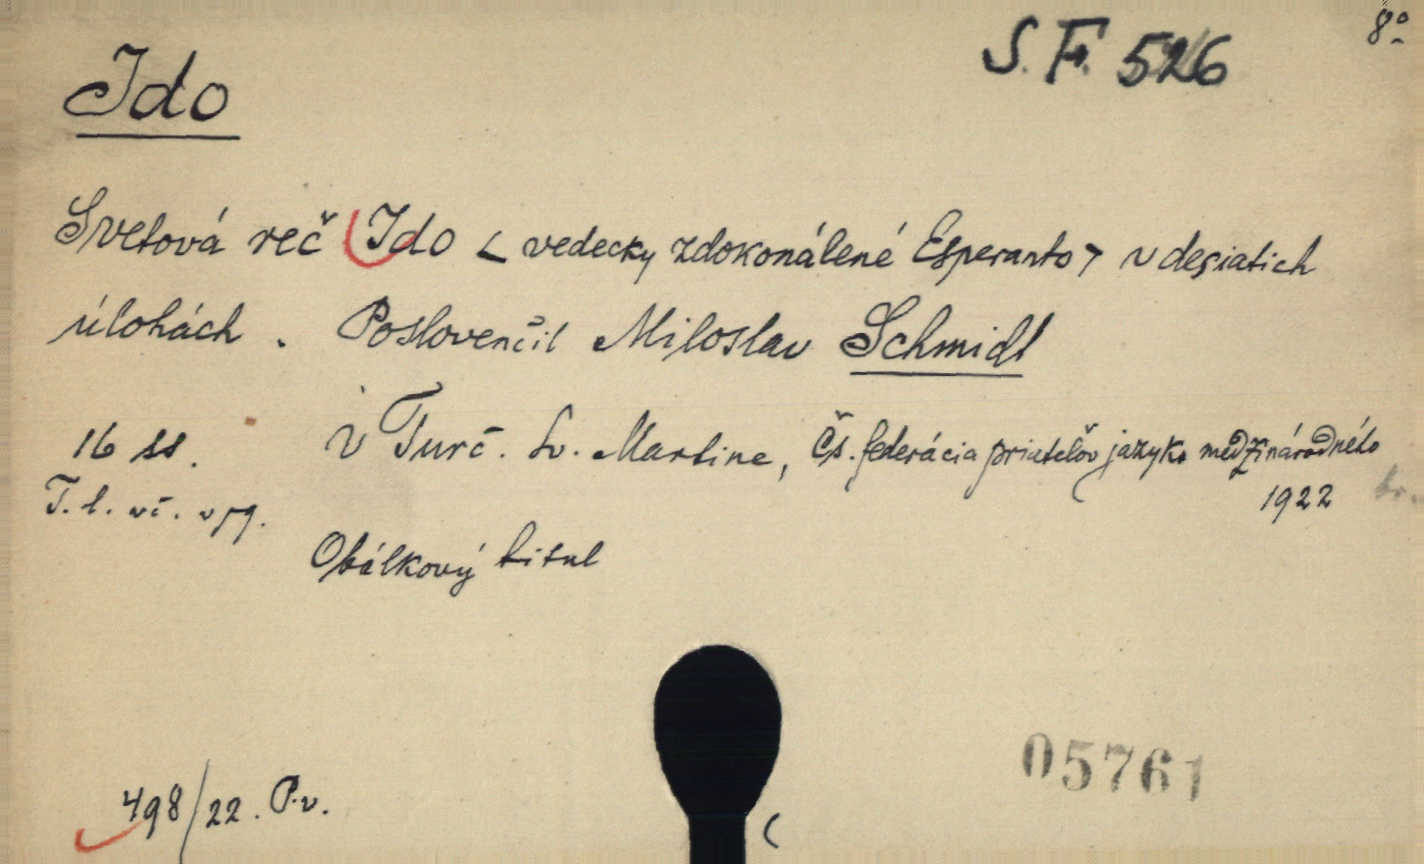 8°
S. F. 526
Ido
Svetová reč Ido < vedecky zdokonálené Esperanto > v desiatich
úlohách. Poslovenčil Miloslav Schmidl
16 ss. V Turč. Sv. Martine, Čs. federácia priateľov jazyka medzinárodného
1922 br.
T. l. úč. spg.
Obálkový titul
05761
498/22. P.v.